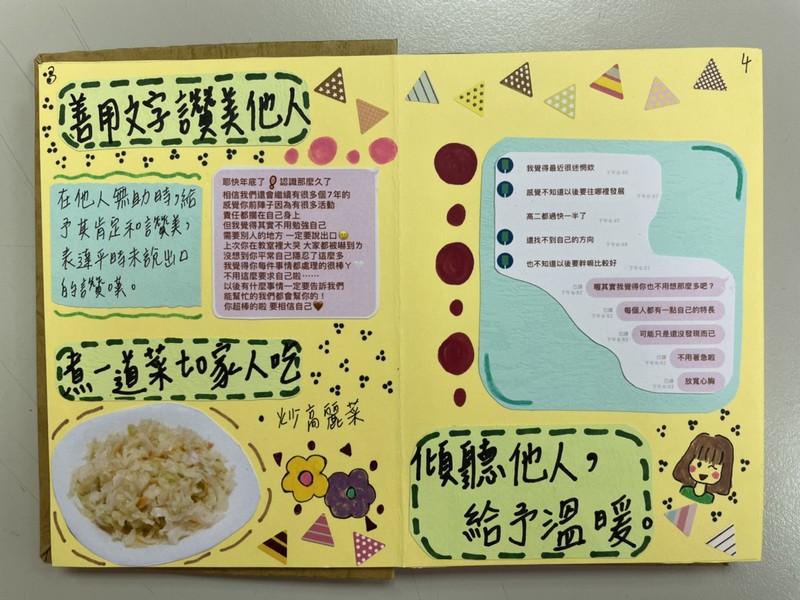 3
善用文字讚美他人
在他人無助時,給
予其肯定和讚美,
表達平時未說出口
的讚嘆。
耶快年底了❗認識那麼久了
相信我們還會繼續有很多個7年的
感覺你前陣子因為有很多活動
責任都攬在自己身上
但我覺得其實不用勉強自己
需要別人的地方 一定要說出口
上次你在教室裡大哭 大家都被嚇到ㄌ
沒想到你平常自己隱忍了這麼多
我覺得你每件事情都處理的很棒ㄚ🤍
不用這麼要求自己⋯⋯
以後有什麼事情一定要告訴我們
能幫忙的我們都會幫你的!
你超棒的啦 要相信自己🤎
煮一道菜給家人吃
·炒高麗菜
4
我覺得最近很迷惘欸
感覺不知道以後要往哪裡發展
高二都過快一半了
還找不到自己的方向
也不知道以後要幹嘛比較好
喔其實我覺得你也不用想那麼多吧?
每個人都有一點自己的特長
可能只是還沒發現而已
不用著急啦
放寬心胸
傾聽他人,
給予溫暖。